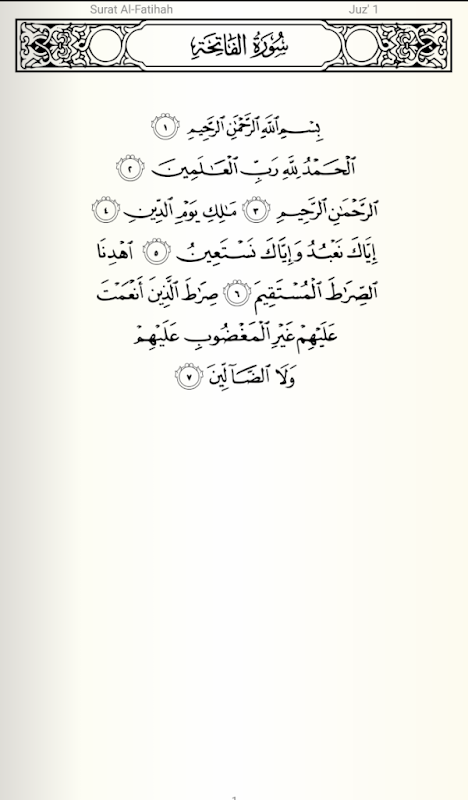 Surat Al-Fatihah Juz' 1
سُورَةُ الفَاتِحَةِ
بِسۡمِ ٱللَّهِ ٱلرَّحۡمَٰنِ ٱلرَّحِيمِ ١
ٱلۡحَمۡدُ لِلَّهِ رَبِّ ٱلۡعَٰلَمِينَ ٢
ٱلرَّحۡمَٰنِ ٱلرَّحِيمِ ٣ مَٰلِكِ يَوۡمِ ٱلدِّينِ ٤
إِيَّاكَ نَعۡبُدُ وَإِيَّاكَ نَسۡتَعِينُ ٥ ٱهۡدِنَا
ٱلصِّرَٰطَ ٱلۡمُسۡتَقِيمَ ٦ صِرَٰطَ ٱلَّذِينَ أَنۡعَمۡتَ
عَلَيۡهِمۡ غَيۡرِ ٱلۡمَغۡضُوبِ عَلَيۡهِمۡ
وَلَا ٱلضَّآلِّينَ ٧